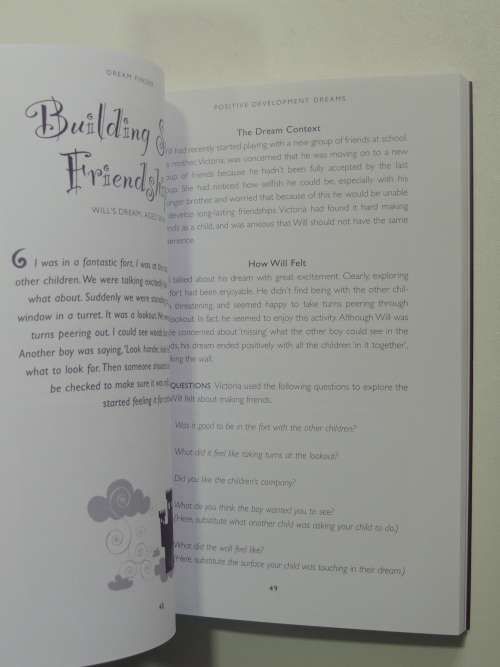 DREAM FINDER
Building S
Friendsh
WILL'S DREAM, AGED
I was in a fantastic fort. I was
other children. We were talking excited
what about. Suddenly we were standing
window in a turret. It was a lookout. We
turns peering out. I could see woods
Another boy was saying, 'Look harder,
what to look for. Then someone
be checked to make sure it was
started feeling it for
POSITIVE DEVELOPMENT DREAMS
The Dream Context
had recently started playing with a new group of friends at school.
mother, Victoria, was concerned that he was moving on to a new
oup of friends because he hadn't been fully accepted by the last
oup. She had noticed how selfish he could be, especially with his
nger brother and worried that because of this he would be unable
develop long-lasting friendships. Victoria had found it hard making
nds as a child, and was anxious that Will should not have the same
erience.
How Will Felt
talked about his dream with great excitement. Clearly, exploring
fort had been enjoyable. He didn't find being with the other chil-
threatening, and seemed happy to take turns peering through
lookout. In fact, he seemed to enjoy the activity. Although Will was
concerned about 'missing' what the other boy could see in the
ds, his dream ended positively with all the children 'in it together',
king the wall.
QUESTIONS Victoria used the following questions to explore the
Will felt about making friends.
Was it good to be in the fort with the other children?
What did it feel like taking turns at the lookout?
Did you like the children's company?
What do you think the boy wanted you to see?
(Here, substitute what another child was asking your child to do.)
What did the wall feel like?
(Here, substitute the surface your child was touching in their dream.)
49